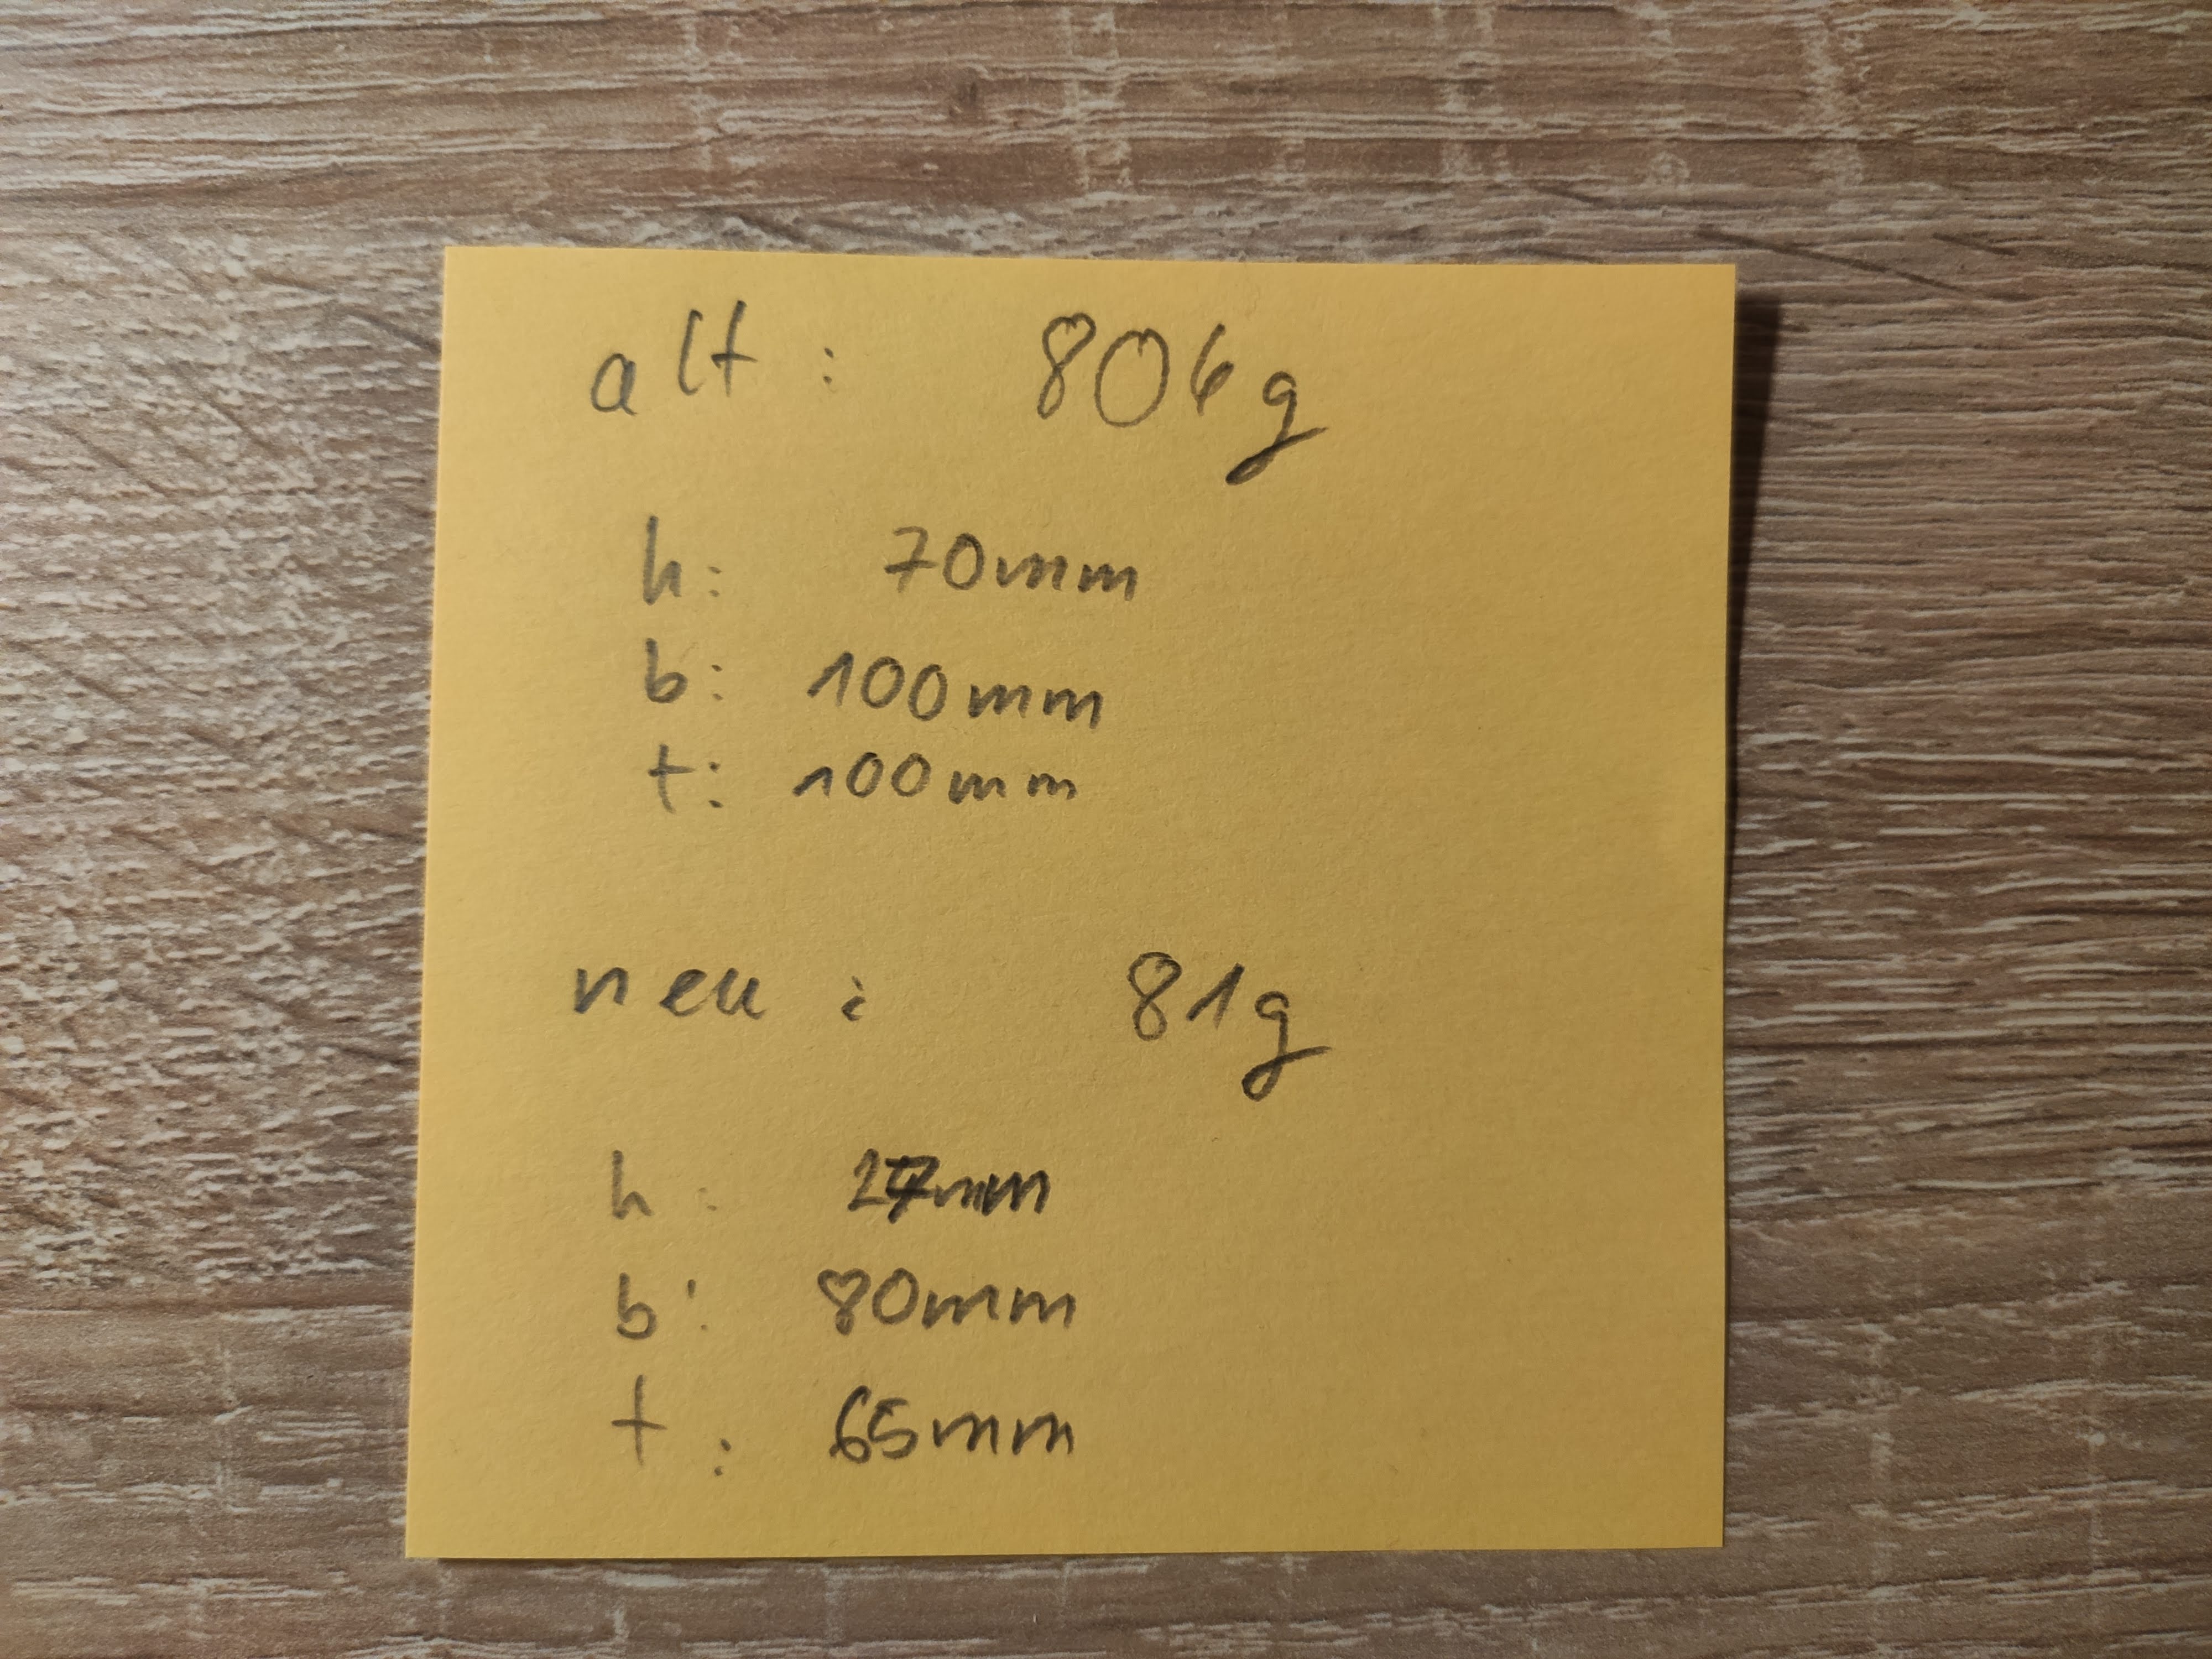 alt: 806g
h: 70mm
b: 100mm
t: 100mm
neu: 81g
h:
b: 80mm
t: 65mm